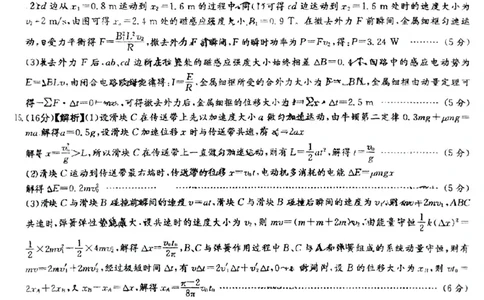 2)cd边从x₁=0.8 m运动到x₂=1.6 m的过程中,同(1)可得cd边运动到x₂=1.6 m处时的速度大小为
v₂=2 m/s,由图可得x=2.4 m处的磁感应强度B₁=0.9 T.在撤去外力F前瞬间,金属细框匀速运
动,由受力平衡得F=B₁²L²v₂/R,撤去外力F前瞬间,F的瞬时功率为P=Fv₂,得:P=3.24 W ……(5分)
(3)撤去外力F后,ab、cd边所在处的磁感应强度大小始终相差ΔB=0.4 T,回路中的感应电动势为
E=ΔBLv,由闭合电路欧姆定律得:I=E/R,金属细框所受的合外力大小为F=ΔBIL,金属细框由动量定理可
得-ΣF·Δt=0-mv₂,可得撤去外力后,金属细框的位移大小为x=Σv·Δt=2.5 m ……(5分)
15.(16分)【解析】(1)设滑块C在传送带上先以加速度大小a做匀加速运动,由牛顿第二定律0.3mg+μmg=
ma解得a=0.5g,设滑块C加速位移x时与传送带共速,有v₀²=2ax
解得x=v₀²/g>L,所以滑块C在传送带上一直做匀加速运动,则有L=½at²,解得t= ……(5分)
(2)滑块C运动到传送带最右端时,传送带的位移x=v₀t,电动机多消耗的电能ΔE=μmgx
解得ΔE=0.2mv₀² ……(5分)
(3)滑块C与滑块B碰撞前瞬间的速度v=at,滑块C与滑块B碰撞后瞬间的速度为v₁,则mv=2mv₁,ABC
共速时,弹簧弹性势能最大,设共速时的速度大小为v₂,则mv=(m+m+2m)v₂,由能量守恒½k(Δx)²=
½×2mv₁²-½×4mv₂²,解得Δx=v₀t₀/2π,B、C与弹簧作用过程中B、C与A和弹簧组成的系统动量守恒,则有
mv=2mv₁′+2mv₂′,经过极短时间Δt,有vΔt=2v₁′Δt+v₂′Δt,0~t₀时间内,设B的位移大小为x_B,则vt₀=
2x_A+2x_B,又x_B-x_A=Δx,解得x_A=(π-2)/8π v₀t₀ ……(6分)